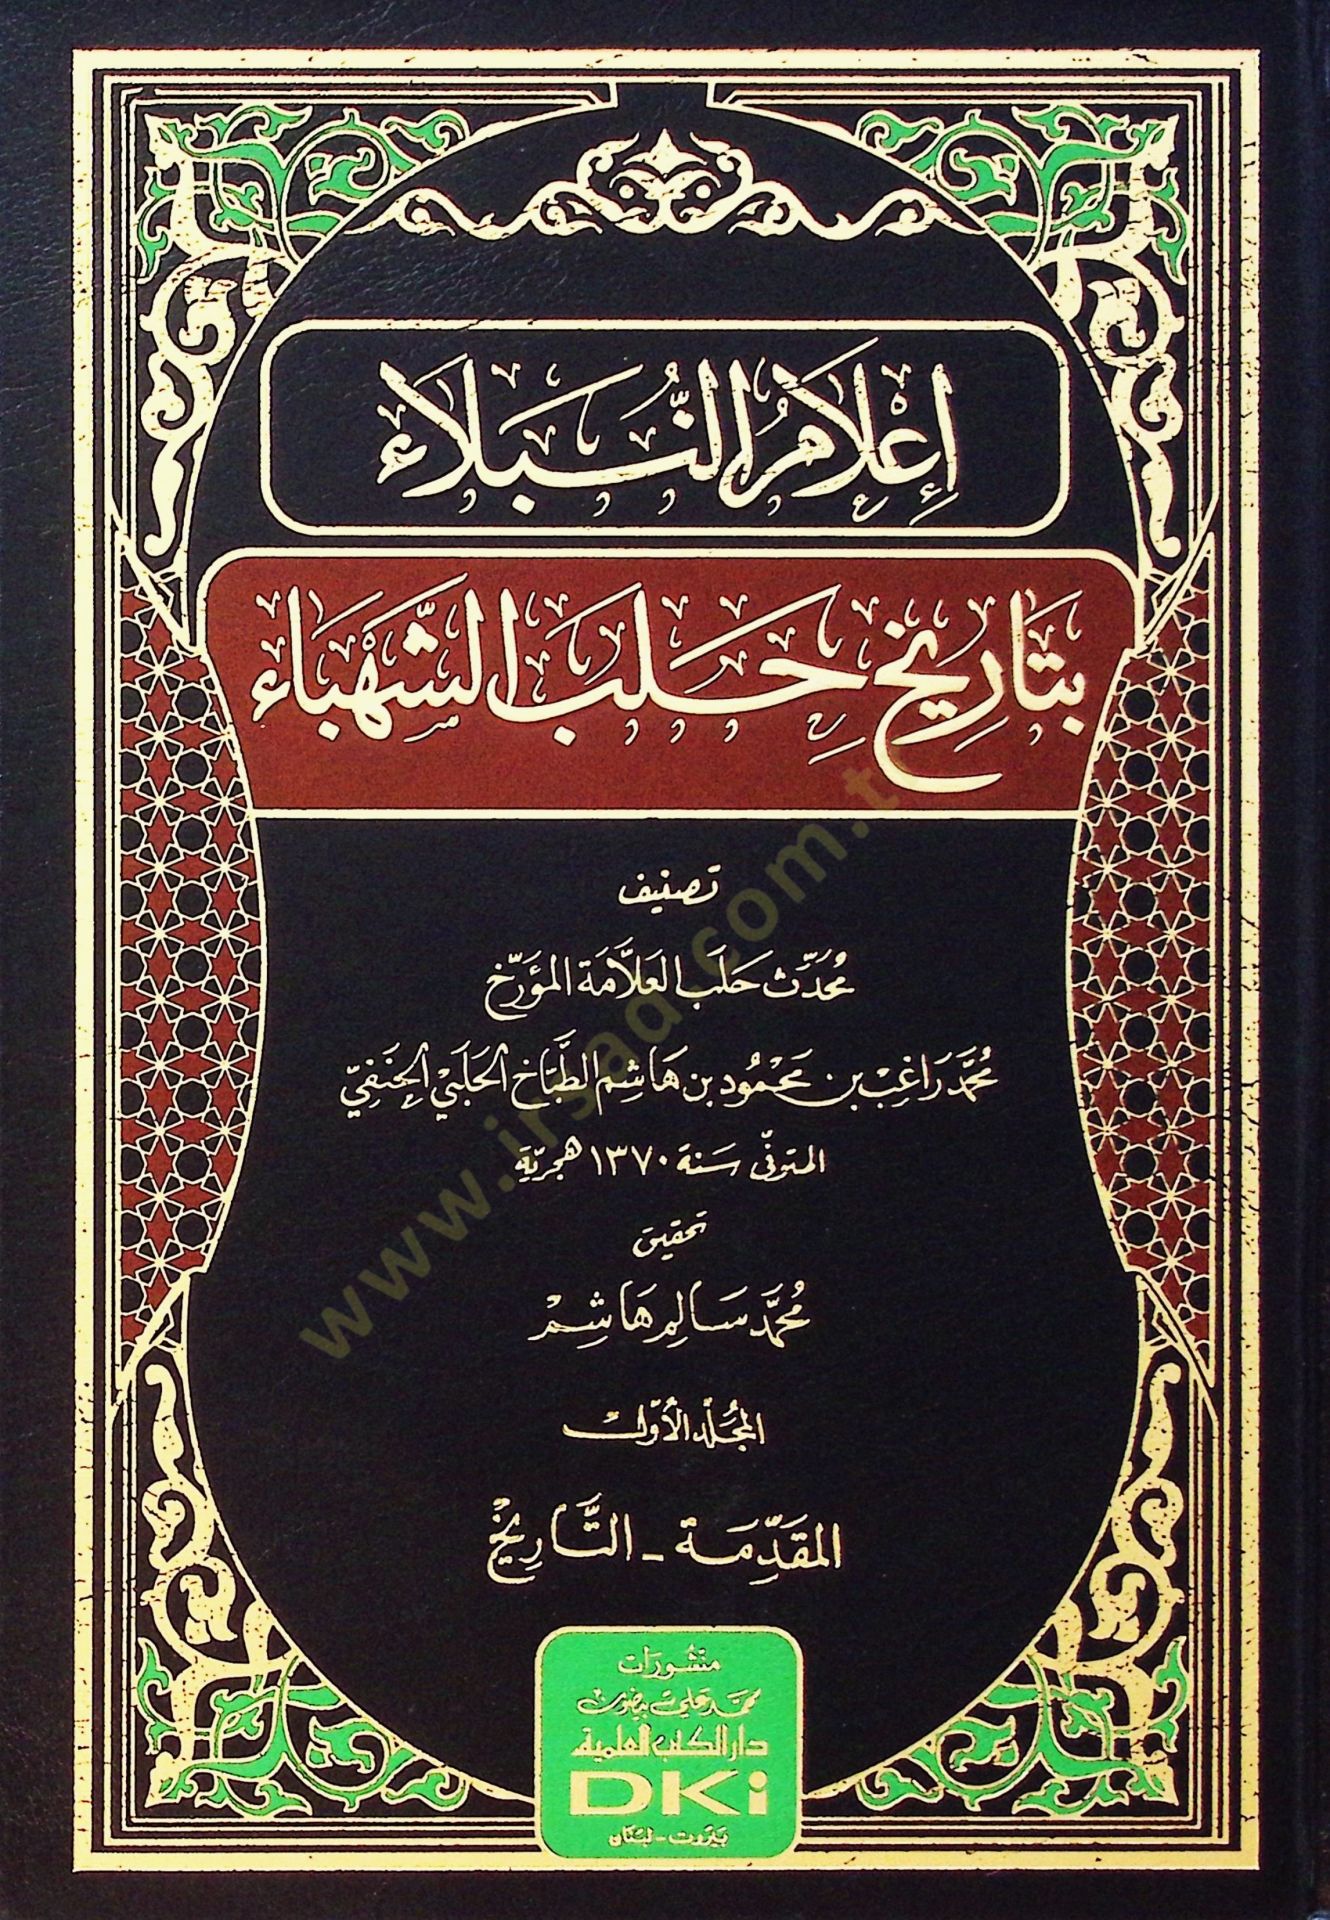 إِعْلَامُ النُّبَلَاء
بِتَارِيخِ حَلَبَ الشَّهْبَاء
تصنيف
مُحَدِّث حَلَب العَلَّامَة المُؤَرِّخ
مُحَمَّد رَاغِب بن مَحْمُود بن هَاشِم الطَّبَّاخ الحَلَبِي الحَنَفِيّ
المتوفّى سَنة ١٣٧٠ هجريّة
تحقيق
مُحَمَّد سَالِم هَاشِم
المُجَلّد الأوّل
المُقَدِّمَة - التَّارِيخ
منشورات
محمد علي بيضون
دار الكتب العلمية
DKi
بيروت - لبنان
www.irsad.com.t